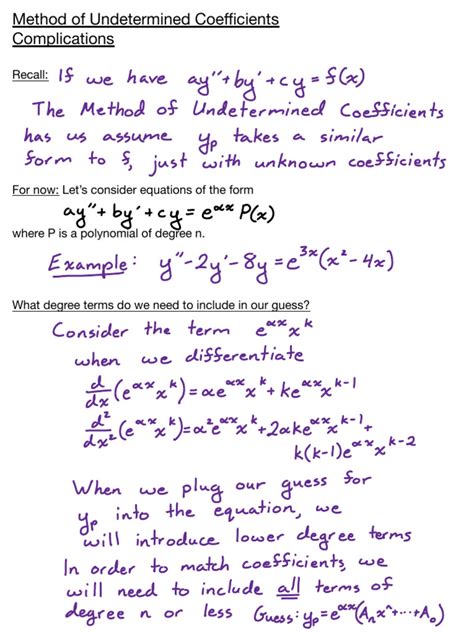 Method of Undetermined Coefficients
Complications
Recall: If we have ay''+by'+cy=f(x)
The Method of Undetermined Coefficients
has us assume yₚ takes a similar
form to f, just with unknown coefficients
For now: Let's consider equations of the form
ay''+by'+cy=e^{αx} P(x)
where P is a polynomial of degree n.
Example: y''-2y'-8y=e^{3x}(x²-4x)
What degree terms do we need to include in our guess?
Consider the term e^{αx}x^k
when we differentiate
d/dx(e^{αx}x^k)=αe^{αx}x^k+ke^{αx}x^{k-1}
d²/dx²(e^{αx}x^k)=α²e^{αx}x^k+2αke^{αx}x^{k-1}+
k(k-1)e^{αx}x^{k-2}
When we plug our guess for
yₚ into the equation, we
will introduce lower degree terms
In order to match coefficients, we
will need to include all terms of
degree n or less Guess: yₚ=e^{αx}(Aₙxⁿ+⋯+A₀)